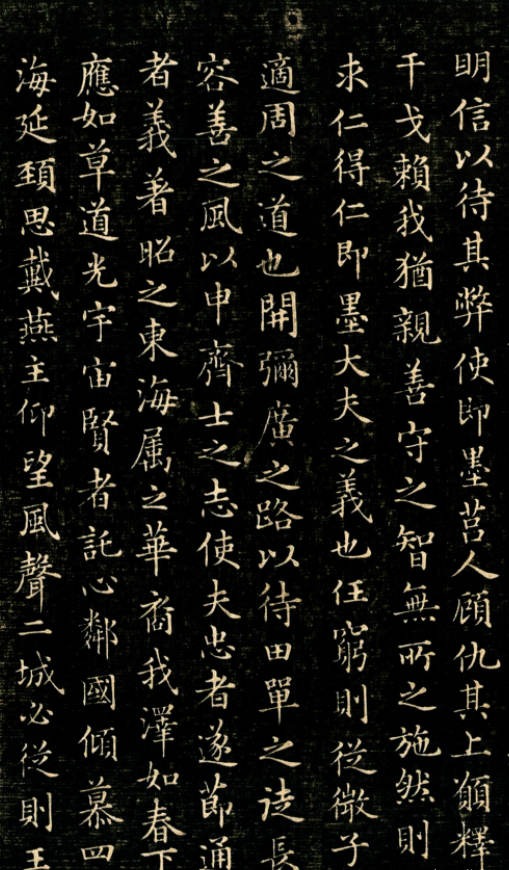 明信以待其弊使即墨莒人顧仇其上願釋
干戈賴我猶親善守之智無所之施然則
求仁得仁即墨大夫之義也任窮則從微子
適周之道也開彌廣之路以待田單之徒長
容善之風以申齊士之志使夫忠者遂節通
者義著昭之東海属之華裔我澤如春下
應如草道光宇宙賢者託心鄰國傾慕四
海延頸思戴燕主仰望風聲二城必從則王